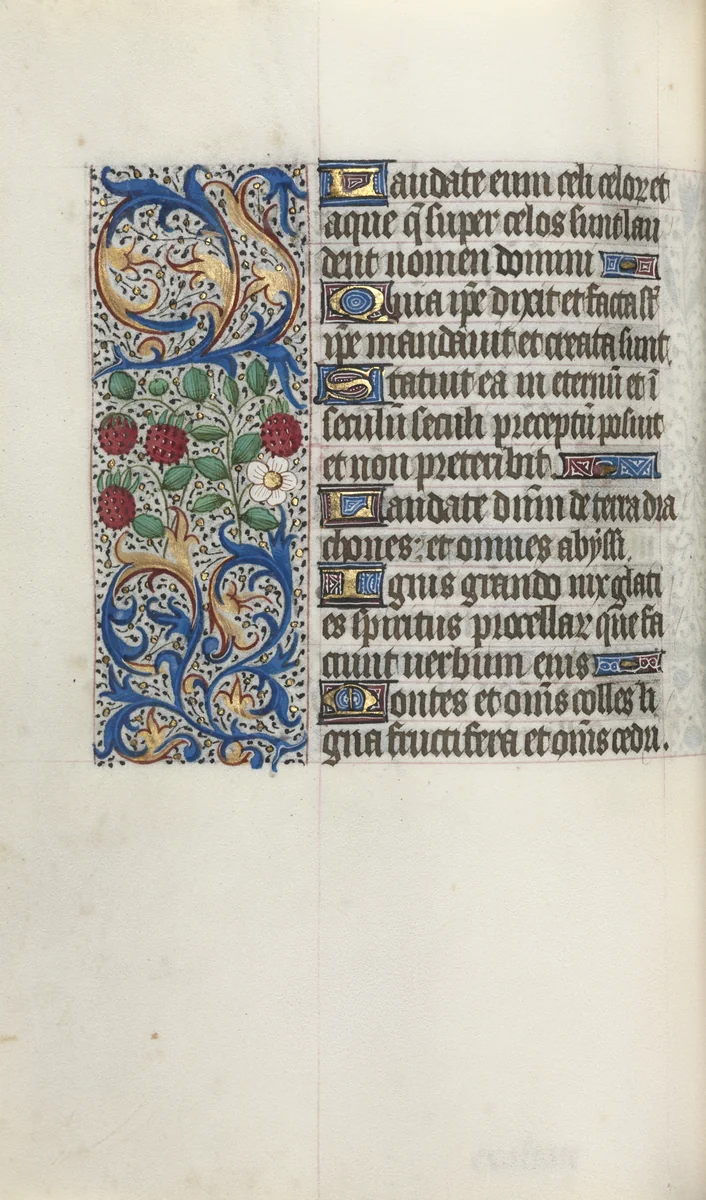 Laudate eum celi celoꝝ et
aque q̄ super celos sunt lau
dent nomen domini
Quia ip̄e dixit et facta sſ̄
ip̄e mandauit et creata sunt
Statuit ea in eternū et ī
seculū seculi preceptū posuit
et non preteribit
Laudate dn̄m de terra dra
chones: et omnes abyssi.
Ignis grando nix glati
es sp̄iritus procellaꝝ que fa
ciunt uerbum eius
Montes et om̄s colles li
gna fructifera et om̄s cedri.